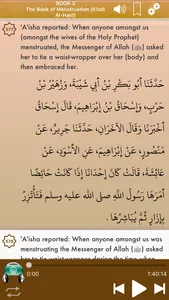 BOOK 3
The Book of Menstruation (Kitab
Al-Haid)
577
'A'isha reported: When anyone amongst us
(amongst the wives of the Holy Prophet)
menstruated, the Messenger of Allah (ﷺ) asked
her to tie a waist-wrapper over her (body) and
then embraced her.
حَدَّثَنَا أَبُو بَكْرِ بْنُ أَبِي شَيْبَةَ، وَزُهَيْرُ بْنُ
حَرْبٍ، وَإِسْحَاقُ بْنُ إِبْرَاهِيمَ، قَالَ إِسْحَاقُ
أَخْبَرَنَا وَقَالَ الآخَرَانِ، حَدَّثَنَا جَرِيرٌ، عَنْ
مَنْصُورٍ، عَنْ إِبْرَاهِيمَ، عَنِ الأَسْوَدِ، عَنْ
عَائِشَةَ، قَالَتْ كَانَ إِحْدَانَا إِذَا كَانَتْ حَائِضًا
أَمَرَهَا رَسُولُ اللَّهِ صلى الله عليه وسلم فَتَأْتَزِرُ
بِإِزَارٍ ثُمَّ يُبَاشِرُهَا ‏.‏
578
'A'isha reported: When anyone amongst us was
menstruating the Messenger of Allah (ﷺ) asked
0:00
1:40:14